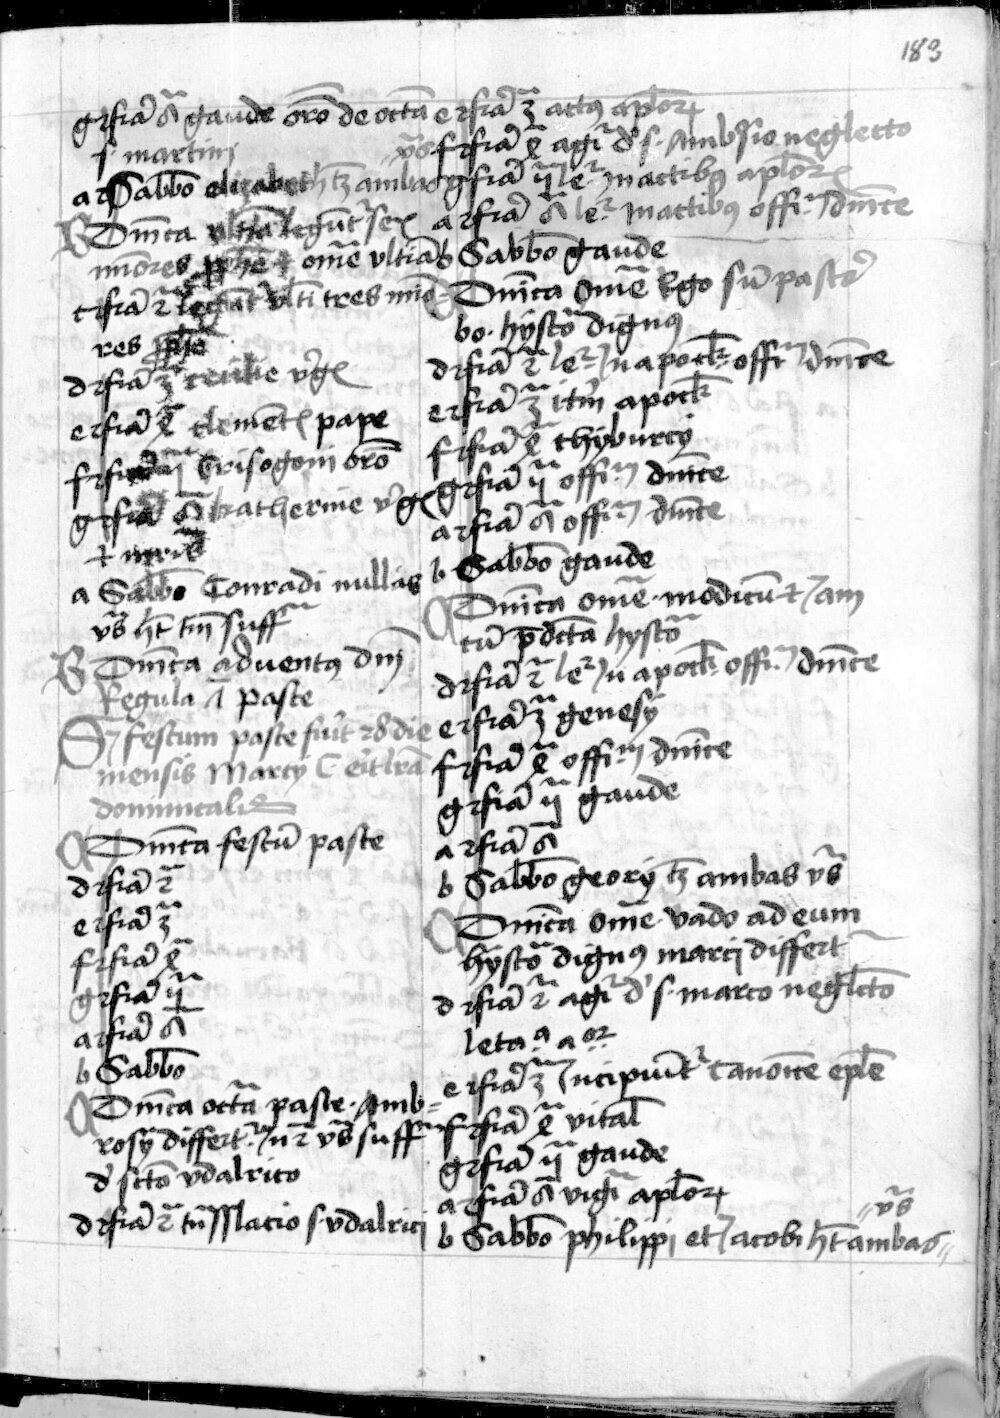 183
g feria̅ 6a̅ gaude oro̅ de octa̅
s. martini
a Sabbo̅ elizabeth h̅z ambas
v̅s
Dnica̅ ultia̅ legunt͛ sex
mores p̅phe̅ & ome̅ ultia̅
c feria̅ 2a̅ legunt͛ ulti̅ tres mino
res p̅phe̅
d feria̅ 3a̅ cecilie v͛gis
e feria̅ 4a̅ clemetis̅ pape
f feria̅ 5a̅ Crisogoni oro̅
g feria̅ 6a̅ katherine v͛gis
& m̅ris
a Sabbo̅ Conradi nullas
v̅s h̅t tm̅ suff
Dnica̅ adventus dni̅
Regula a̅ pasce
Si festum pasce fuit͛ 28 die
mensis Marcy C erit͛ lra̅
dominicalis
Dnica̅ festu̅ pasce
d feria̅ 2a̅
e feria̅ 3a̅
f feria̅ 4a̅
g feria̅ 5a̅
a feria̅ 6a̅
b Sabbo̅
Dnica̅ octa̅ pasce. Amb=
rosy differt͛ in 2 v̅s suff
d' scto̅ vdalrico
d feria̅ 2a̅ tn̅sslacio s. vdalrici
e feria̅ 3a̅ actus aplor̅
f feria̅ 4a̅ agi͛ d' s. Ambrosio neglecto
g feria̅ 5a̅ le͛ in actibus aplor̅
a feria̅ 6a̅ le͛ in actibus offi͛m dnice̅
b Sabbo̅ gaude
Dnica̅ ome̅ Ego su̅ pastor
bo. hysto̅ dignus
d feria̅ 2a̅ le͛ in apock͛ offi͛m dnice̅
e feria̅ 3a̅ it͛m apock͛
f feria̅ 4a̅ thyburcy
g feria̅ 5a̅ offi͛m dnice̅
a feria̅ 6a̅ offi͛m dnice̅
b Sabbo̅ gaude
Dnica̅ ome̅. modicu̅ & iam
cu̅ p̅dcta̅ hysto̅
d feria̅ 2a̅ le͛ in apock͛ offi͛m dnice̅
e feria̅ 3a̅ genesy
f feria̅ 4a̅ offi͛m dnice̅
g feria̅ 5a̅ gaude
a feria̅ 6a̅
b Sabbo̅ geory h̅z ambas v̅s
Dnica̅ ome̅. vado ad eum
hysto̅ dignus marci differt͛
d feria̅ 2a̅ agi͛ d' s. marco neglcto̅
leta
e feria̅ 3a̅ Incipiunt͛ Canonice̅ eple̅
f feria̅ 4a̅ vital̅
g feria̅ 5a̅ gaude
a feria̅ 6a̅ vigi͛ aplor̅
v̅s
b Sabbo̅ philippi et Jacobi h̅t ambas